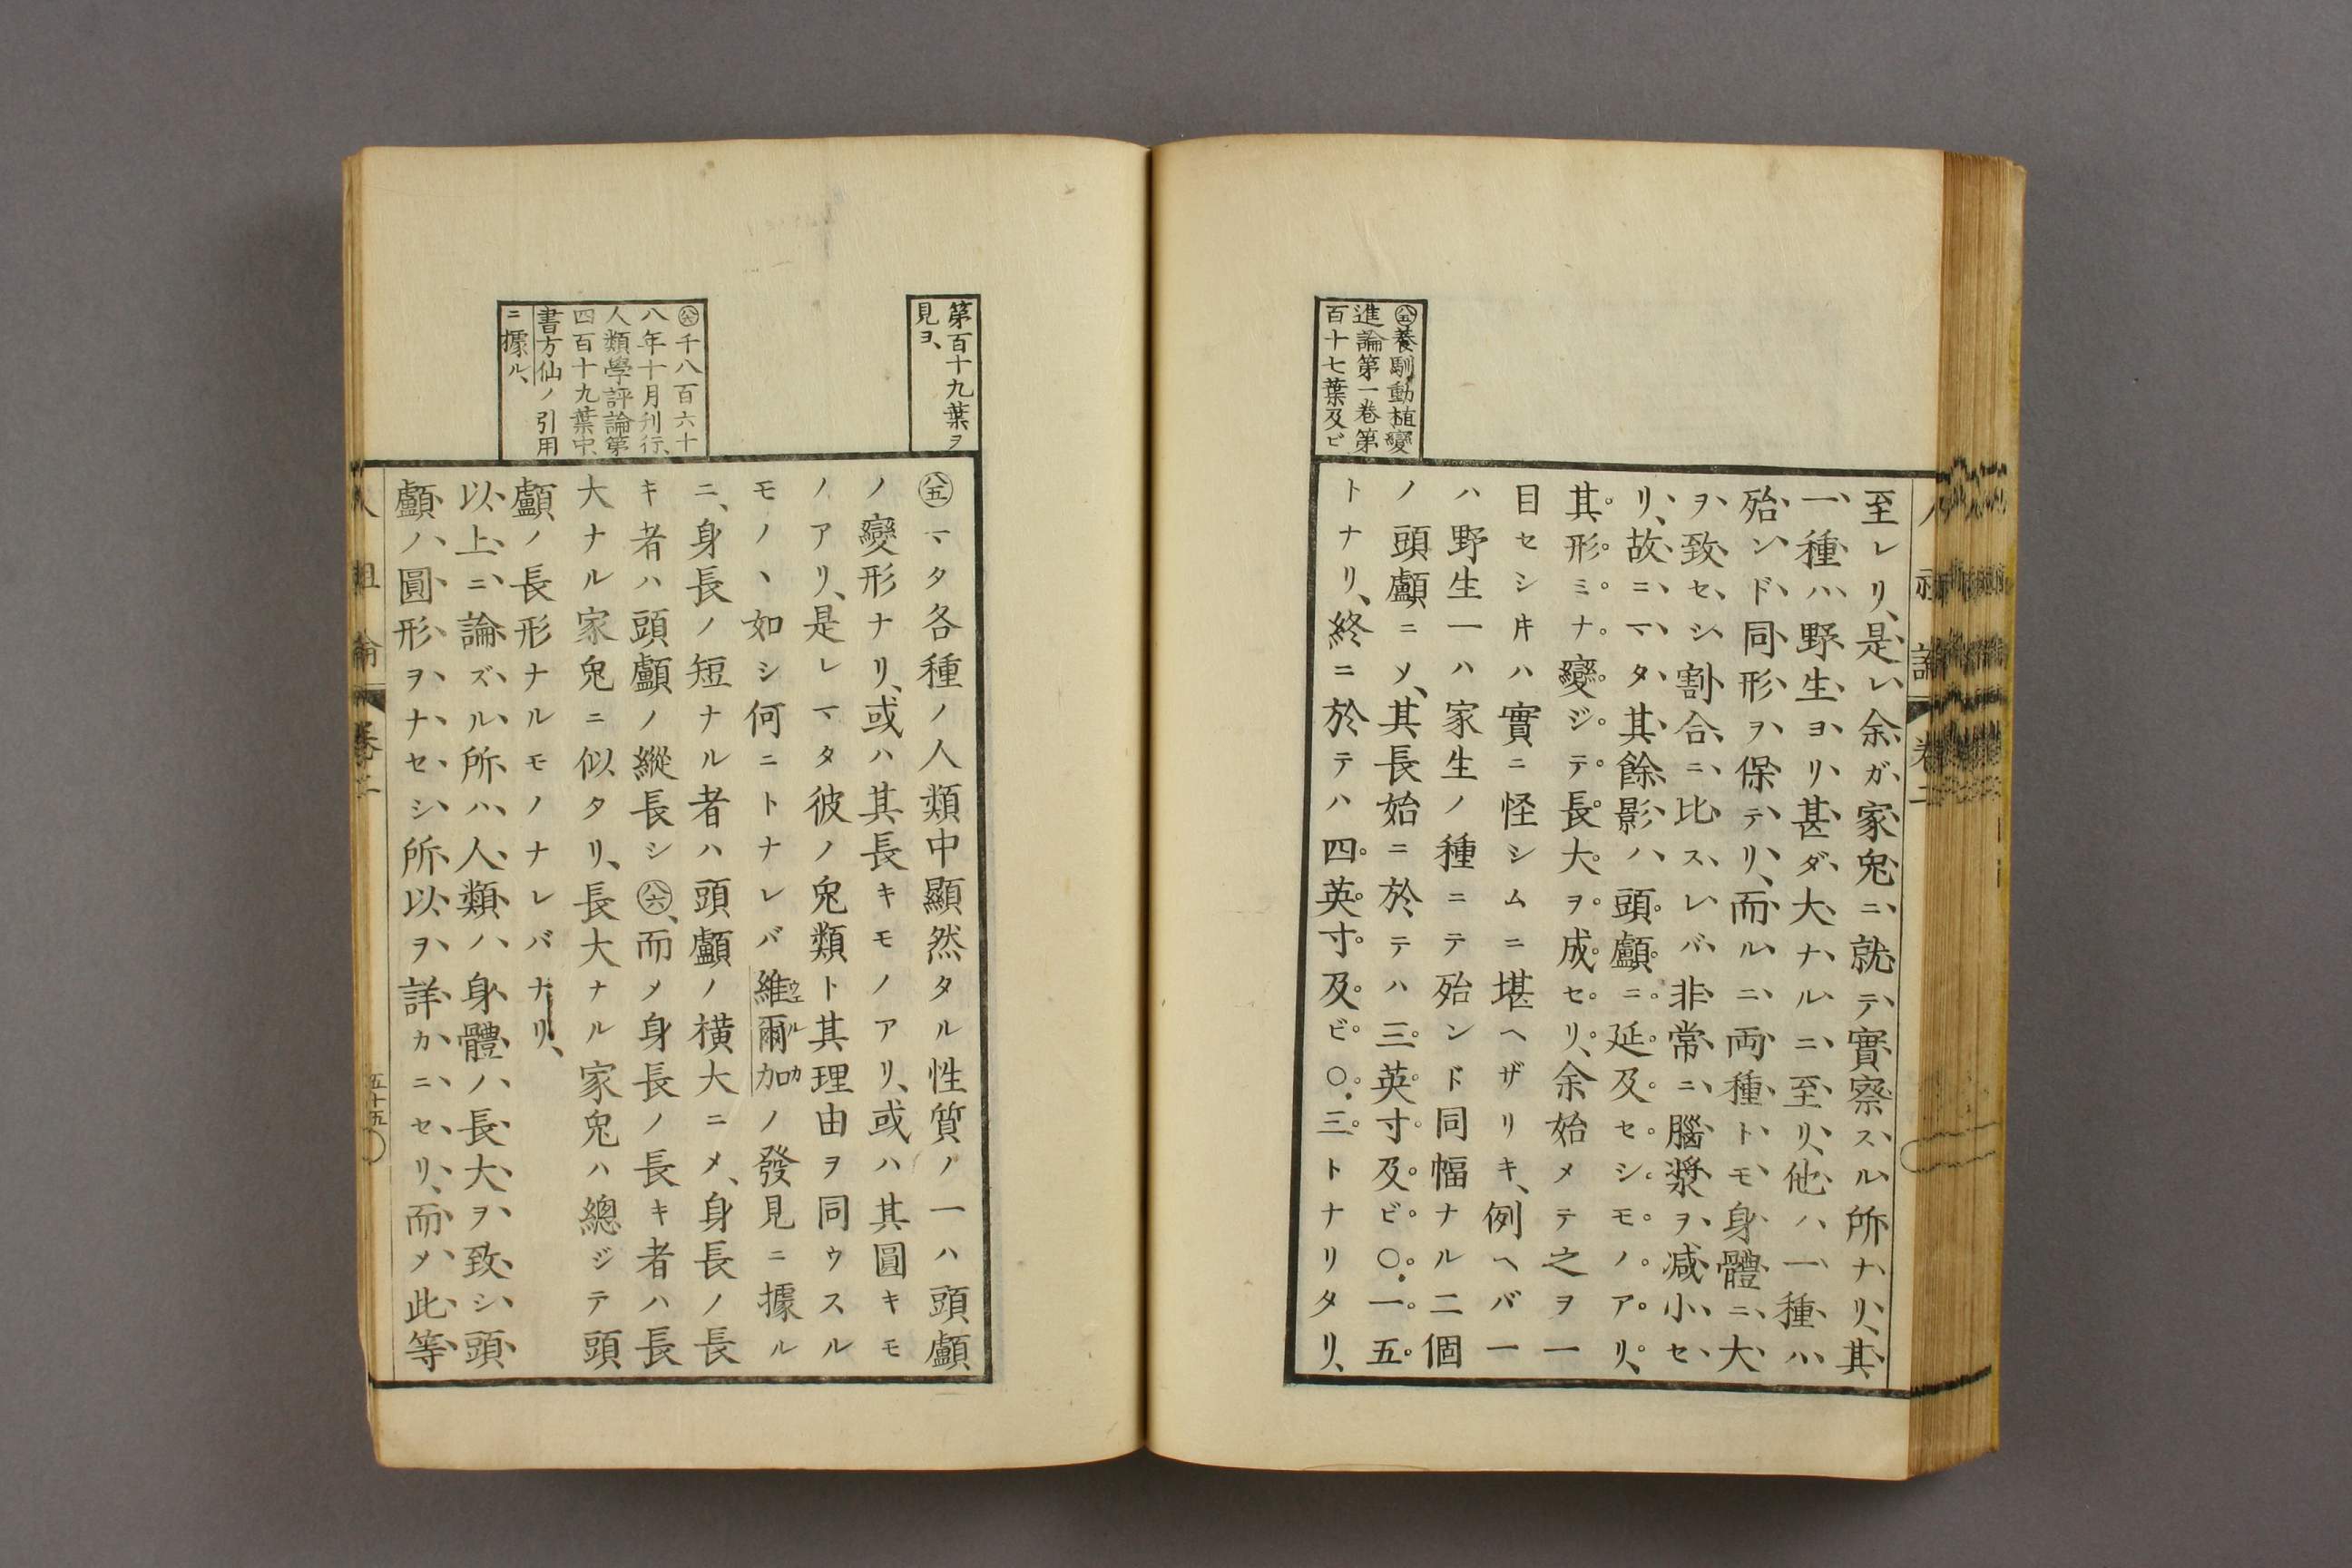 人祖論 卷二
㊇㊄養馴動植變
進論第一卷第
百十七葉及ビ
至レリ、是レ余ガ家兔ニ就テ實察スル所ナリ、其
一種ハ野生ヨリ甚ダ大ナルニ至リ、他ハ一種ハ
殆ンド同形ヲ保テリ、而ルニ両種トモ身體ニ大
ヲ致セシ割合ニ比スレバ非常ニ腦漿ヲ减小セ
リ、故ニマタ其餘影ハ頭顱ニ延及セシモノアリ、
其形ミナ變ジテ長大ヲ成セリ、余始メテ之ヲ一
目セシ𪜈ハ實ニ怪シムニ堪ヘザリキ、例ヘバ一
ハ野生一ハ家生ノ種ニテ殆ンド同幅ナル二個
ノ頭顱ニソ、其長始ニ於テハ三英寸及ビ〇.一五
トナリ、終ニ於テハ四英寸及ビ〇.三トナリタリ、
第百十九葉ヲ
見ヨ、
㊇㊅千八百六十
八年十月刊行、
人類學評論第
四百十九葉中、
書方仙ノ引用
ニ據ル、
㊇㊄マタ各種ノ人類中顯然タル性質ノ一ハ頭顱
ノ變形ナリ、或ハ其長キモノアリ、或ハ其圓キモ
ノアリ、是レマタ彼ノ兔類ト其理由ヲ同ウスル
モノヽ如シ何ニトナレバ維爾加ノ發見ニ據ル
ウエルカ
ニ、身長ノ短ナル者ハ頭顱ノ横大ニメ、身長ノ長
キ者ハ頭顱ノ縱長シ㊇㊅、而メ身長ノ長キ者ハ長
大ナル家兔ニ似タリ、長大ナル家兔ハ總ジテ頭
顱ノ長形ナルモノナレバナリ、
以上ニ論ズル所ハ人類ノ身體ノ長大ヲ致シ頭
顱ノ圓形ヲナセシ所以ヲ詳カニセリ、而メ此等
人祖論 卷二 五十五